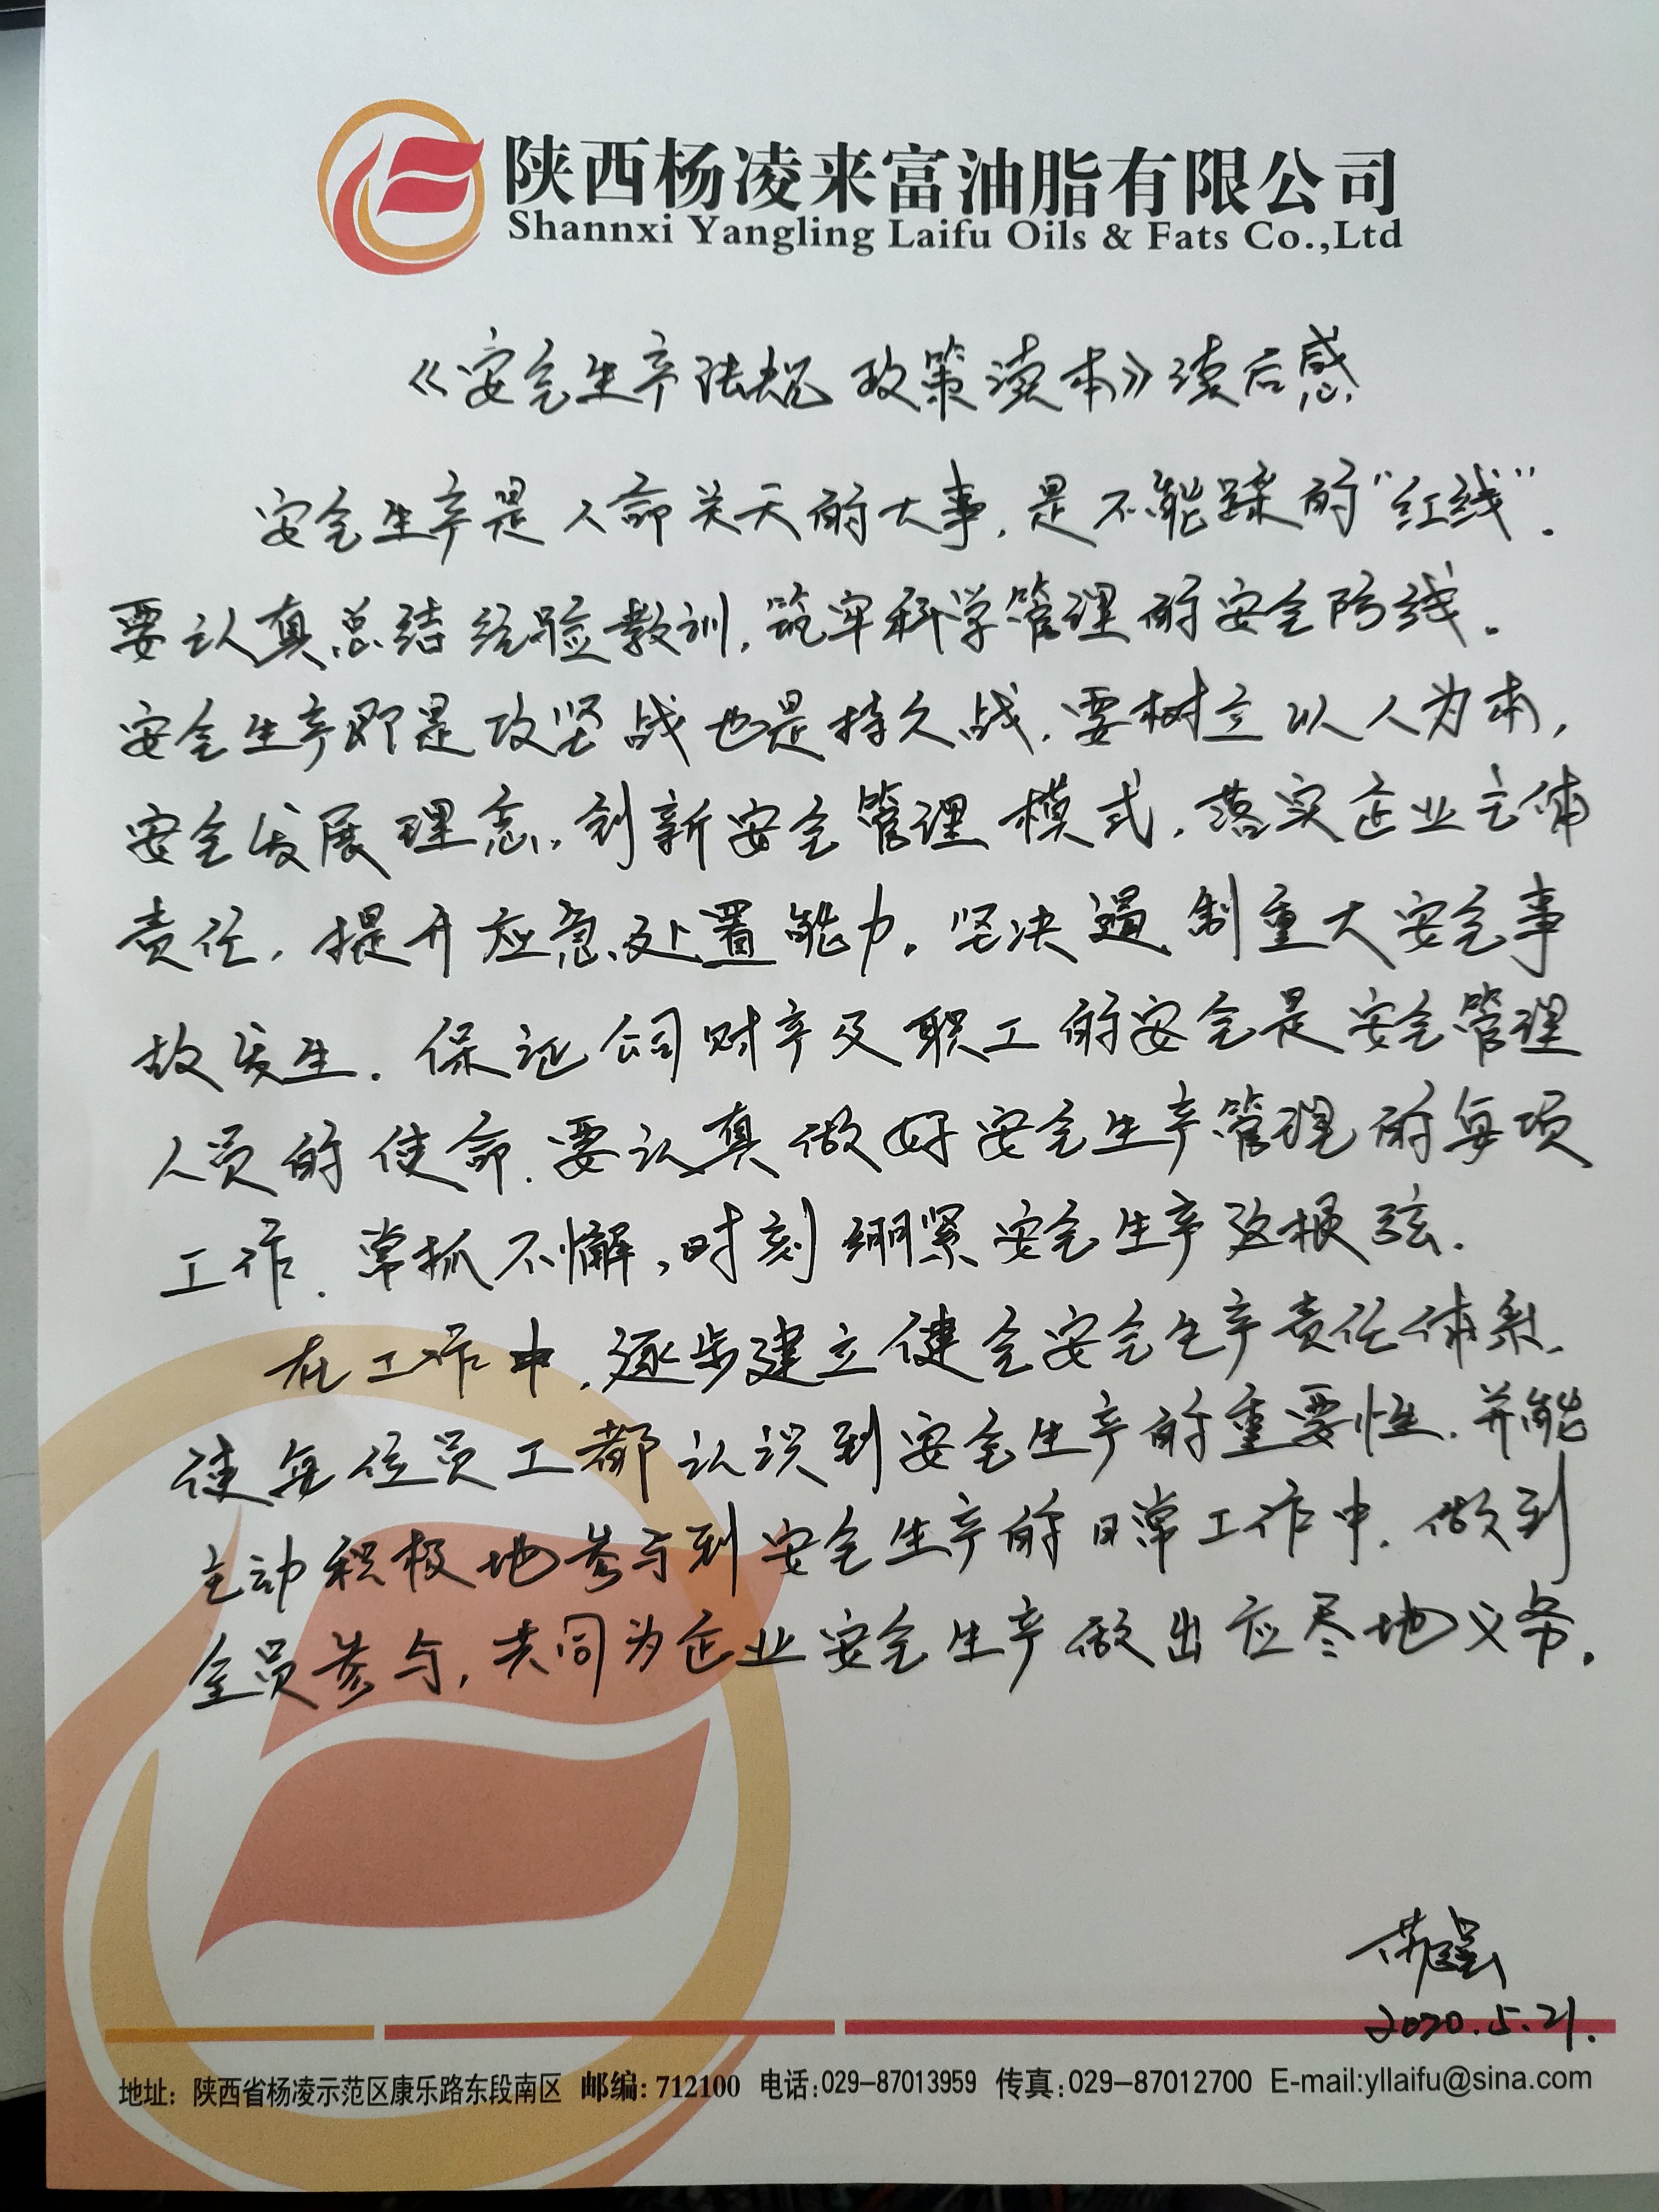 陕西杨凌来富油脂有限公司
Shannxi Yangling Laifu Oils & Fats Co.,Ltd
《安全生产法规政策读本》读后感
安全生产是人命关天的大事,是不能踩的“红线”.
要认真总结经验教训,筑牢科学管理的安全防线。
安全生产即是攻坚战也是持久战,要树立以人为本,
安全发展理念,创新安全管理模式,落实企业主体
责任,提升应急处置能力。坚决遏制重大安全事
故发生.保证公司财产及职工的安全是安全管理
人员的使命.要认真做好安全生产管理的每项
工作.常抓不懈,时刻绷紧安全生产这根弦.
在工作中,逐步建立健全安全生产责任体系,
使每位员工都认识到安全生产的重要性.并能
主动积极地参与到安全生产的日常工作中.做到
全员参与,共同为企业安全生产做出应尽地义务.
2020.5.21.
地址:陕西省杨凌示范区康乐路东段南区 邮编:712100 电话:029-87013959 传真:029-87012700 E-mail:yllaifu@sina.com